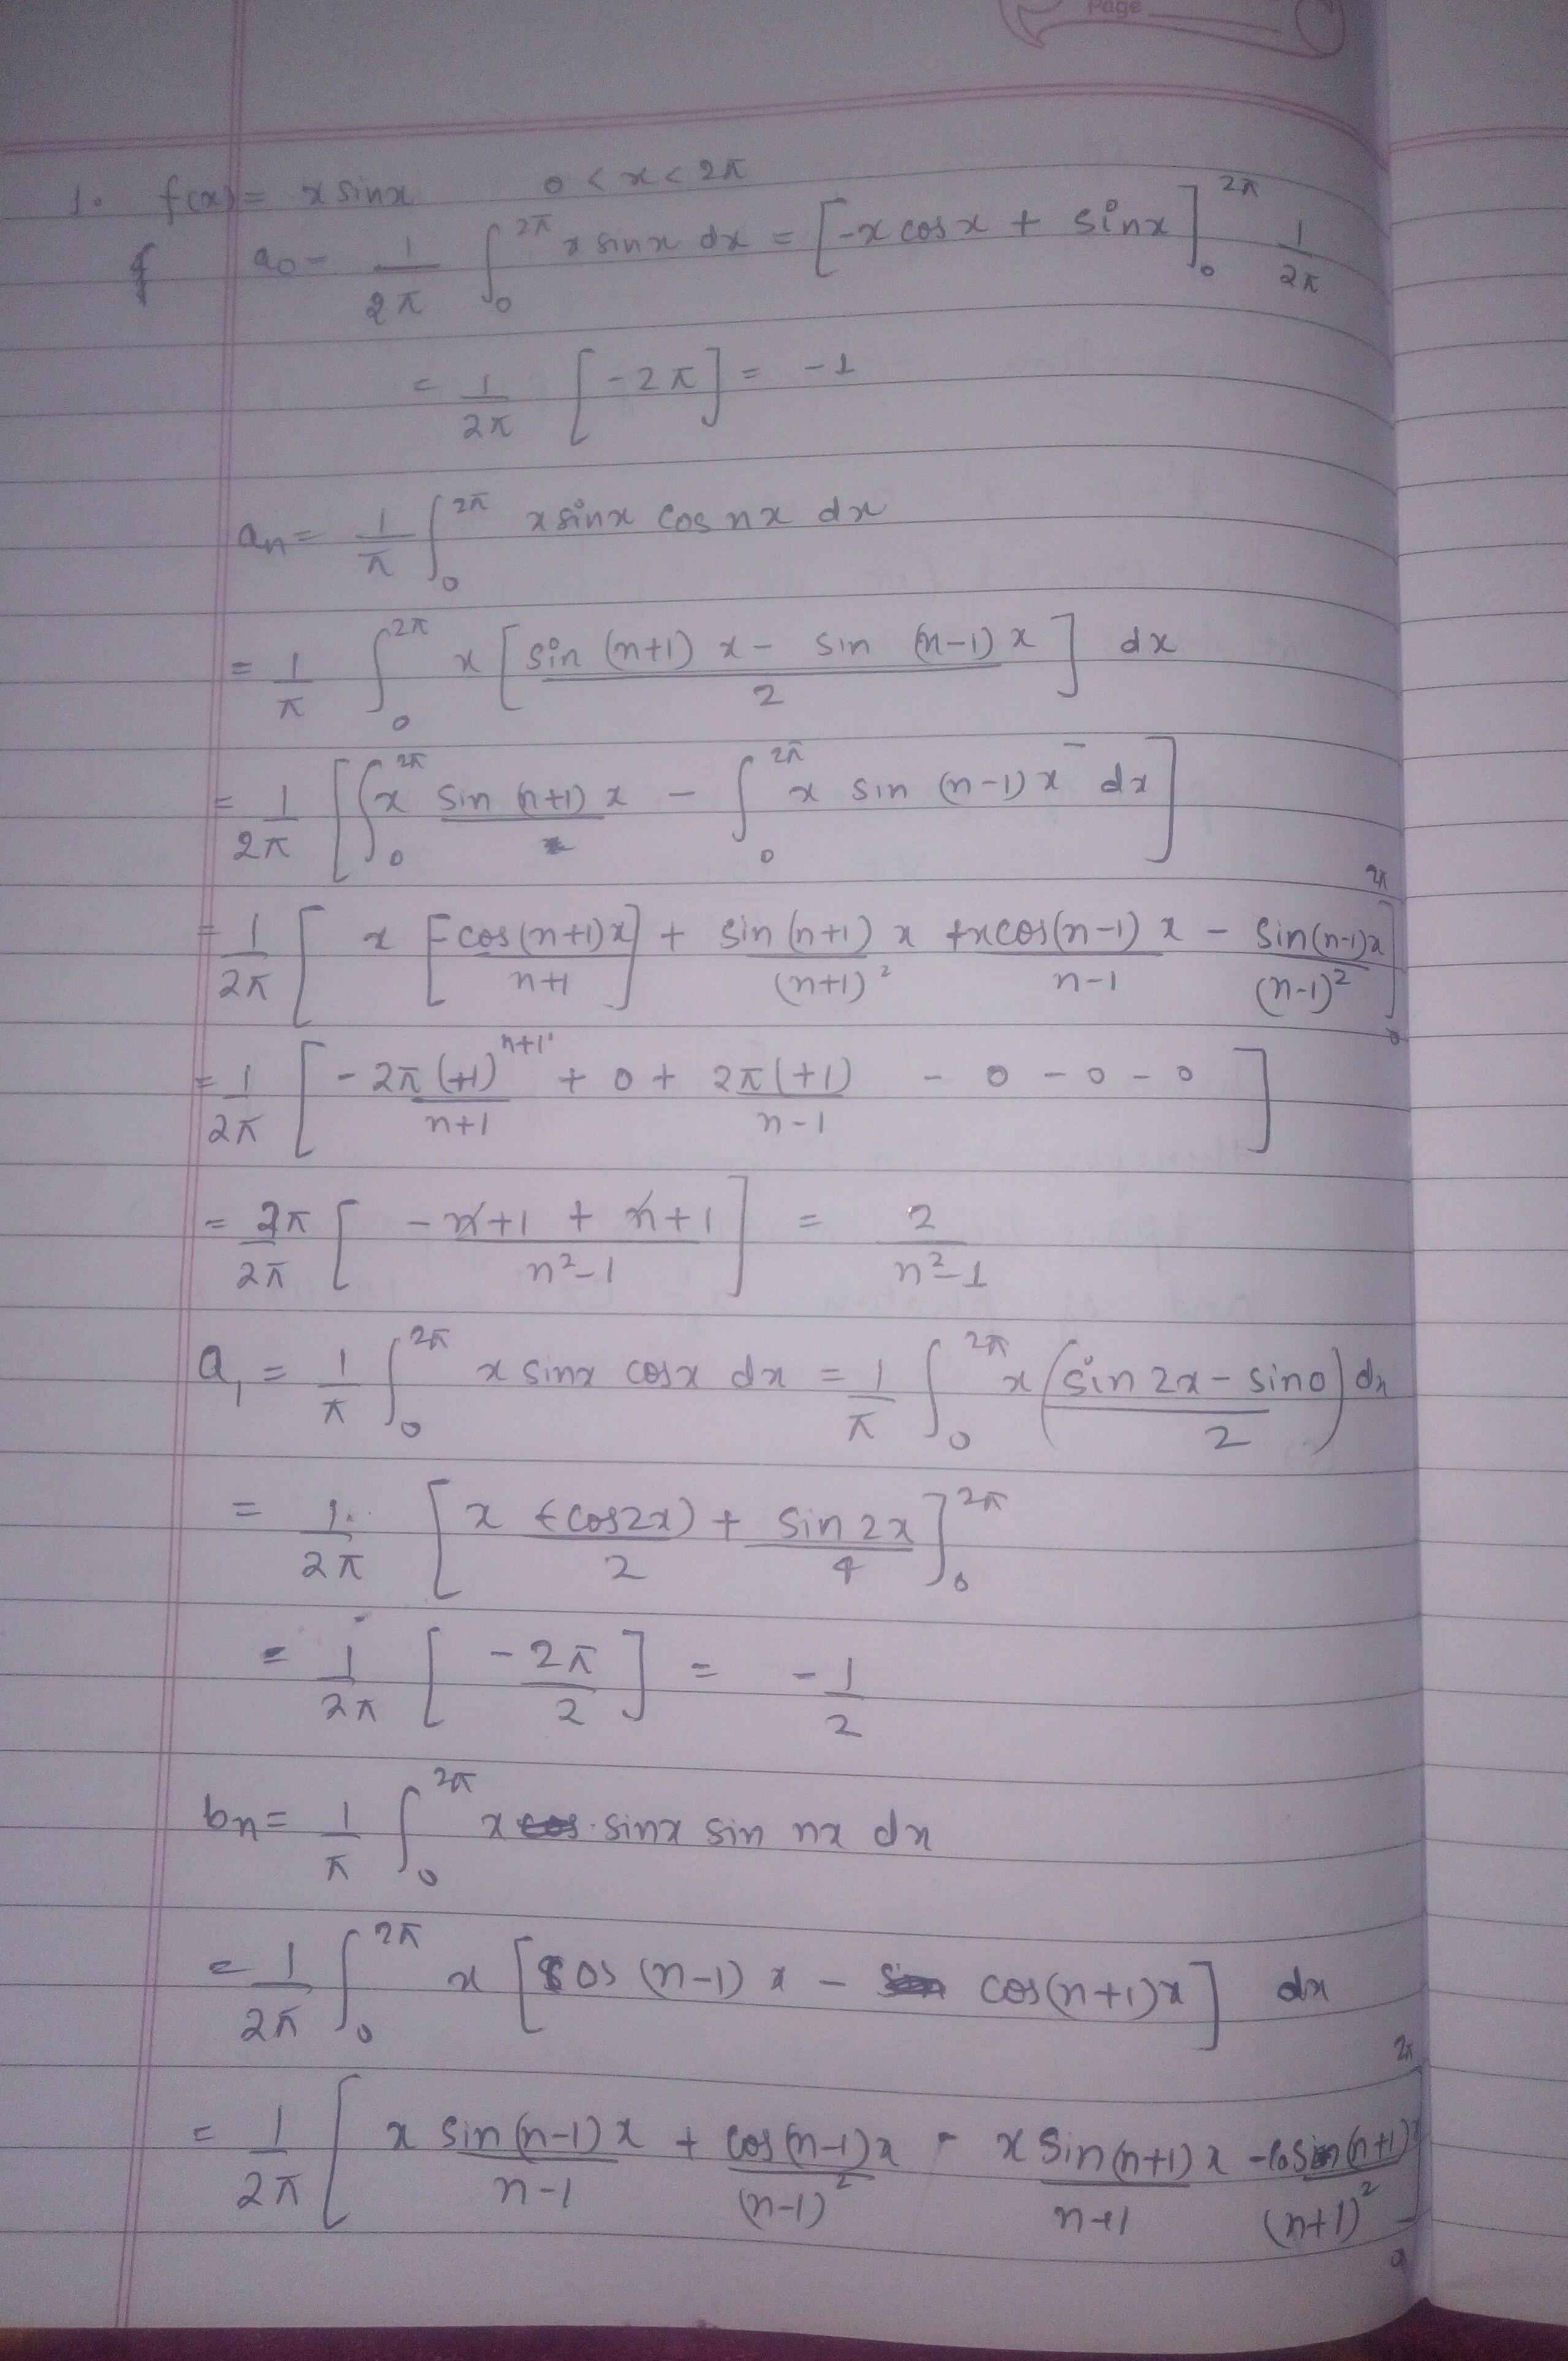 Page
1. f(x) = x sinx 0 < x < 2π
a0 = 1/2π ∫_0^2π x sinx dx = [-x cos x + sinx]_0^2π 1/2π
= 1/2π [-2π] = -1
an = 1/π ∫_0^2π x sinx cos nx dx
= 1/π ∫_0^2π x [sin (n+1) x - sin (n-1) x / 2] dx
= 1/2π [∫_0^2π x sin (n+1) x - ∫_0^2π x sin (n-1) x dx]
= 1/2π [x [-cos(n+1)x / n+1] + sin (n+1) x / (n+1)^2 + x cos(n-1) x / n-1 - sin(n-1)x / (n-1)^2]_0^2π
= 1/2π [-2π (+1)^n+1 / n+1 + 0 + 2π(+1) / n-1 - 0 - 0 - 0]
= 2π/2π [-n+1 + n+1 / n^2-1] = 2 / n^2-1
a1 = 1/π ∫_0^2π x sinx cosx dx = 1/π ∫_0^2π x (sin 2x - sin0 / 2) dx
= 1/2π [x (-cos2x) / 2 + sin 2x / 4]_0^2π
= 1/2π [-2π / 2] = -1/2
bn = 1/π ∫_0^2π x sinx sin nx dx
= 1/2π ∫_0^2π x [cos (n-1) x - cos(n+1)x] dx
= 1/2π [x sin (n-1) x / n-1 + cos (n-1)x / (n-1)^2 - x sin (n+1) x / n+1 - cos (n+1)x / (n+1)^2]_0^2π